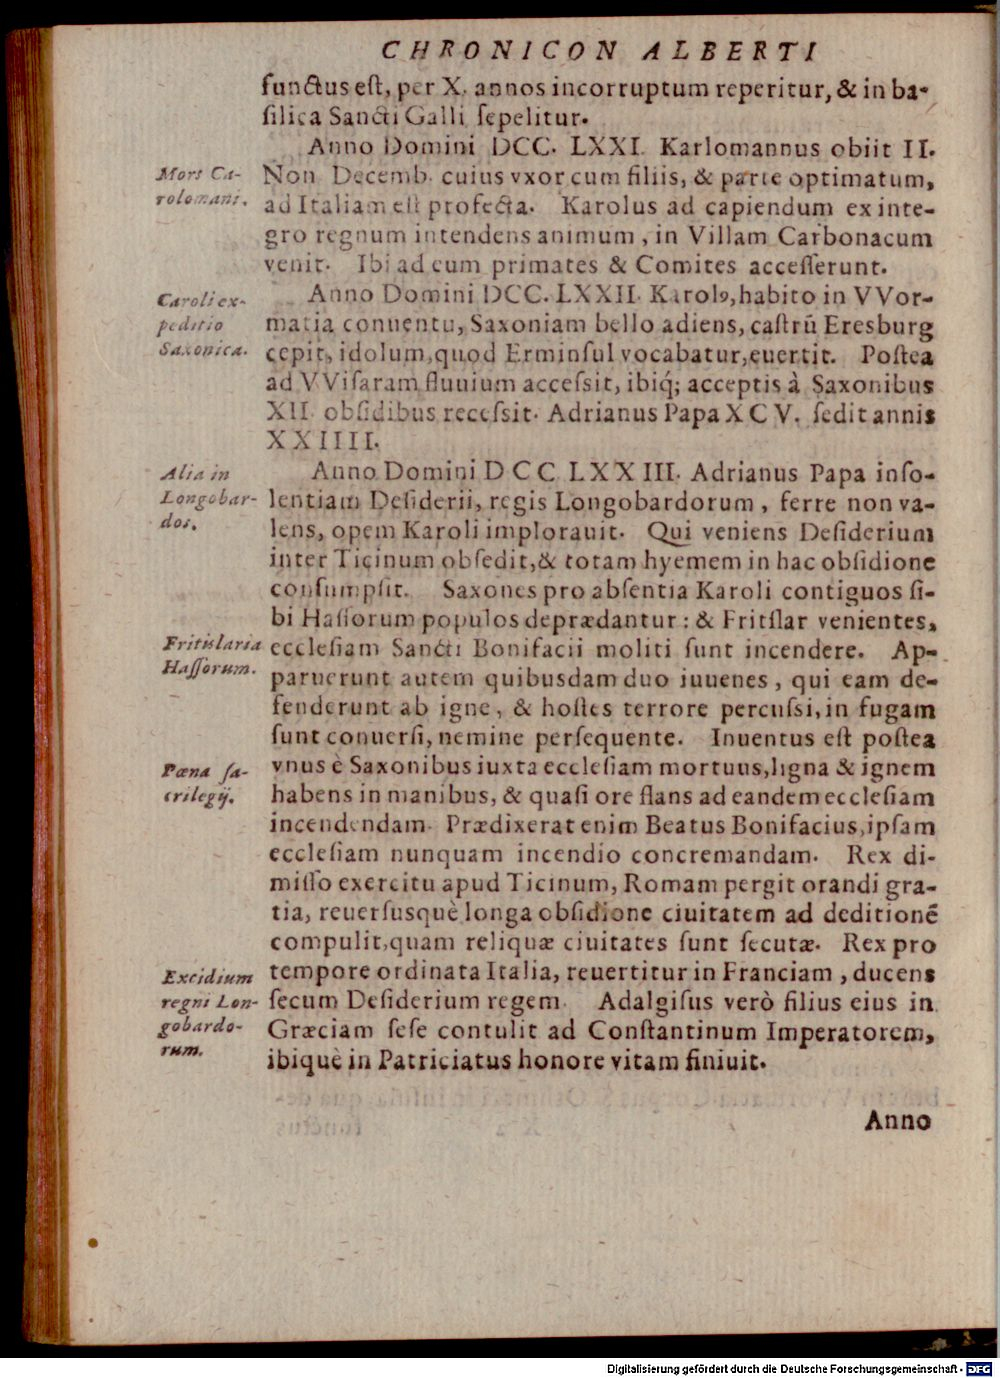 CHRONICON ALBERTI
functus est, per X. annos incorruptum reperitur, & in ba-
silica Sancti Galli sepelitur.
Anno Domini DCC. LXXI. Karlomannus obiit II.
Mors Ca-
rolomani.
Non. Decemb. cuius vxor cum filiis, & parte optimatum,
ad Italiam est profecta. Karolus ad capiendum ex inte-
gro regnum intendens animum, in Villam Carbonacum
venit. Ibi ad eum primates & Comites accesserunt.
Caroli ex-
peditio
Saxonica.
Anno Domini DCC. LXXII. Karolꝰ, habito in VVor-
matia conuentu, Saxoniam bello adiens, castrū Eresburg
cepit, idolum, quod Erminsul vocabatur, euertit. Postea
ad VVisaram fluuium accessit, ibiq́; acceptis à Saxonibus
XII. obsidibus recessit. Adrianus Papa X C V. sedit annis
X X I I I I.
Alia in
Longobar-
dos.
Anno Domini D C C LX X III. Adrianus Papa inso-
lentiam Desiderii, regis Longobardorum, ferre non va-
lens, opem Karoli implorauit. Qui veniens Desiderium
inter Ticinum obsedit, & totam hyemem in hac obsidione
consumpsit. Saxones pro absentia Karoli contiguos si-
bi Hassorum populos deprædantur: & Fritslar venientes,
Fritislaria
Hassorum.
ecclesiam Sancti Bonifacii moliti sunt incendere. Ap-
paruerunt autem quibusdam duo iuuenes, qui eam de-
fenderunt ab igne, & hostes terrore percussi, in fugam
sunt conuersi, nemine persequente. Inuentus est postea
Pœna sa-
crilegij.
vnus è Saxonibus iuxta ecclesiam mortuus, ligna & ignem
habens in manibus, & quasi ore flans ad eandem ecclesiam
incendendam. Prædixerat enim Beatus Bonifacius, ipsam
ecclesiam nunquam incendio concremandam. Rex di-
misso exercitu apud Ticinum, Romam pergit orandi gra-
tia, reuersusquè longa obsidione ciuitatem ad deditionē
compulit, quam reliquæ ciuitates sunt secutæ. Rex pro
Excidium
regni Lon-
gobardo-
rum.
tempore ordinata Italia, reuertitur in Franciam, ducens
secum Desiderium regem. Adalgisus verò filius eius in
Græciam sese contulit ad Constantinum Imperatorem,
ibiquè in Patriciatus honore vitam finiuit.
Anno
Digitalisierung gefördert durch die Deutsche Forschungsgemeinschaft - DFG